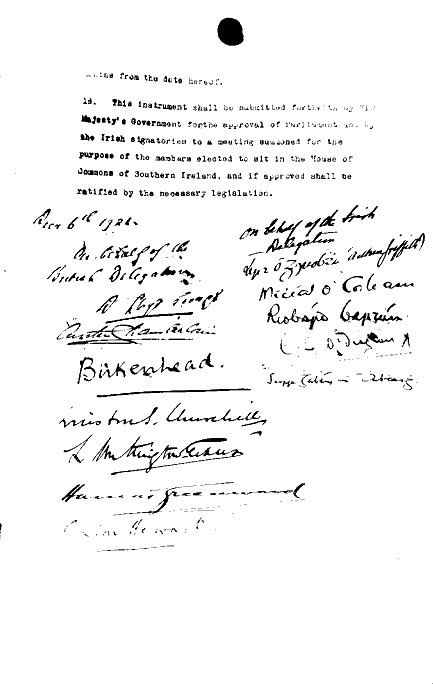 from the date hereof.
18. This instrument shall be submitted forthwith by His
Majesty's Government forthe approval of Parliament and by
the Irish signatories to a meeting summoned for the
purpose of the members elected to sit in the House of
Commons of Southern Ireland, and if approved shall be
ratified by the necessary legislation.
Decr 6th 1921.
On behalf of the
British Delegation
D Lloyd George
Austen Chamberlain
Birkenhead.
Winston S. Churchill
L Worthington Evans
Hamar Greenwood
Gordon Hewart
On behalf of the Irish
Delegation
Art Ó Gríobhtha (Arthur Griffith)
Micheál Ó Coileain
Riobárd Bartún